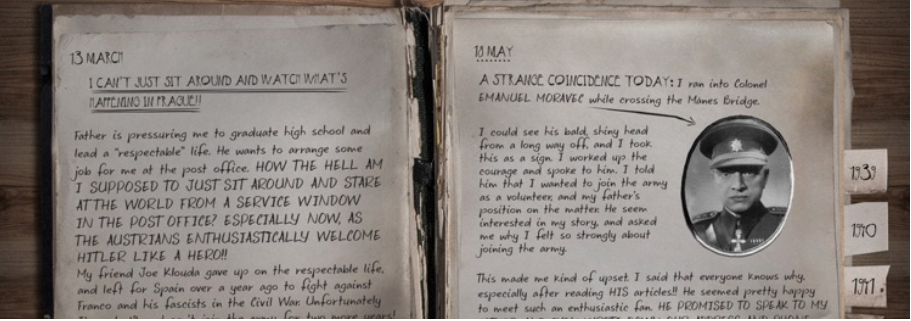 13 MARCH
I CAN'T JUST SIT AROUND AND WATCH WHAT'S
HAPPENING IN PRAGUE!!
Father is pressuring me to graduate high school and
lead a "respectable" life. He wants to arrange some
job for me at the post office. HOW THE HELL AM
I SUPPOSED TO JUST SIT AROUND AND STARE
AT THE WORLD FROM A SERVICE WINDOW
IN THE POST OFFICE? ESPECIALLY NOW, AS
THE AUSTRIANS ENTHUSIASTICALLY WELCOME
HITLER LIKE A HERO!!
My friend Joe Klouda gave up on the respectable life,
and left for Spain over a year ago to fight against
Franco and his fascists in the Civil War. Unfortunately
join the army for two more years!
18 MAY
A STRANGE COINCIDENCE TODAY: I ran into Colonel
EMANUEL MORAVEC while crossing the Mánes Bridge.
I could see his bald, shiny head
from a long way off, and I took
this as a sign. I worked up the
courage and spoke to him. I told
him that I wanted to join the army
as a volunteer, and my father's
position on the matter. He seem
interested in my story, and asked
me why I felt so strongly about
joining the army.
This made me kind of upset. I said that everyone knows why,
especially after reading HIS articles!! He seemed pretty happy
to meet such an enthusiastic fan. HE PROMISED TO SPEAK TO MY
1939
1940
1941